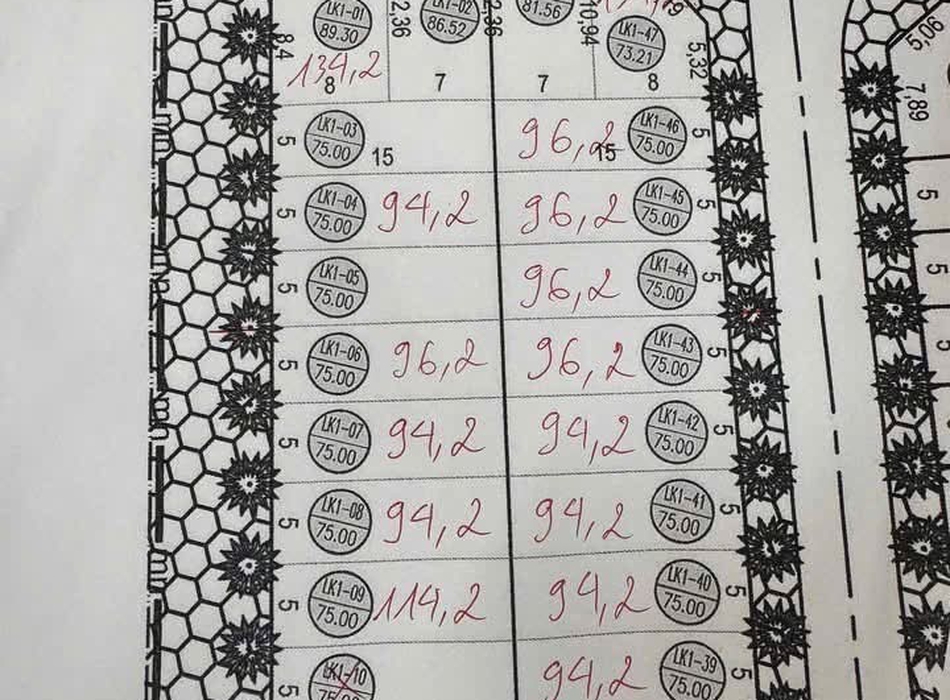 LK1-01 LK1-02
89.30 86.52 81.56 LK1-47
8,4 2,36 2,36 10,94 73.21 5,32 5,06
134,2
8 7 7 8 7,89
5 LK1-03 75.00 15 96,2 15 LK1-46 75.00 5
5 LK1-04 75.00 94,2 96,2 LK1-45 75.00 5 5
5 LK1-05 75.00 96,2 LK1-44 75.00 5 5
5 LK1-06 75.00 96,2 96,2 LK1-43 75.00 5 5
5 LK1-07 75.00 94,2 94,2 LK1-42 75.00 5
5 LK1-08 75.00 94,2 94,2 LK1-41 75.00 5
5 LK1-09 75.00 114,2 94,2 LK1-40 75.00 5
5 LK1-10 94,2 LK1-39 75.00 5